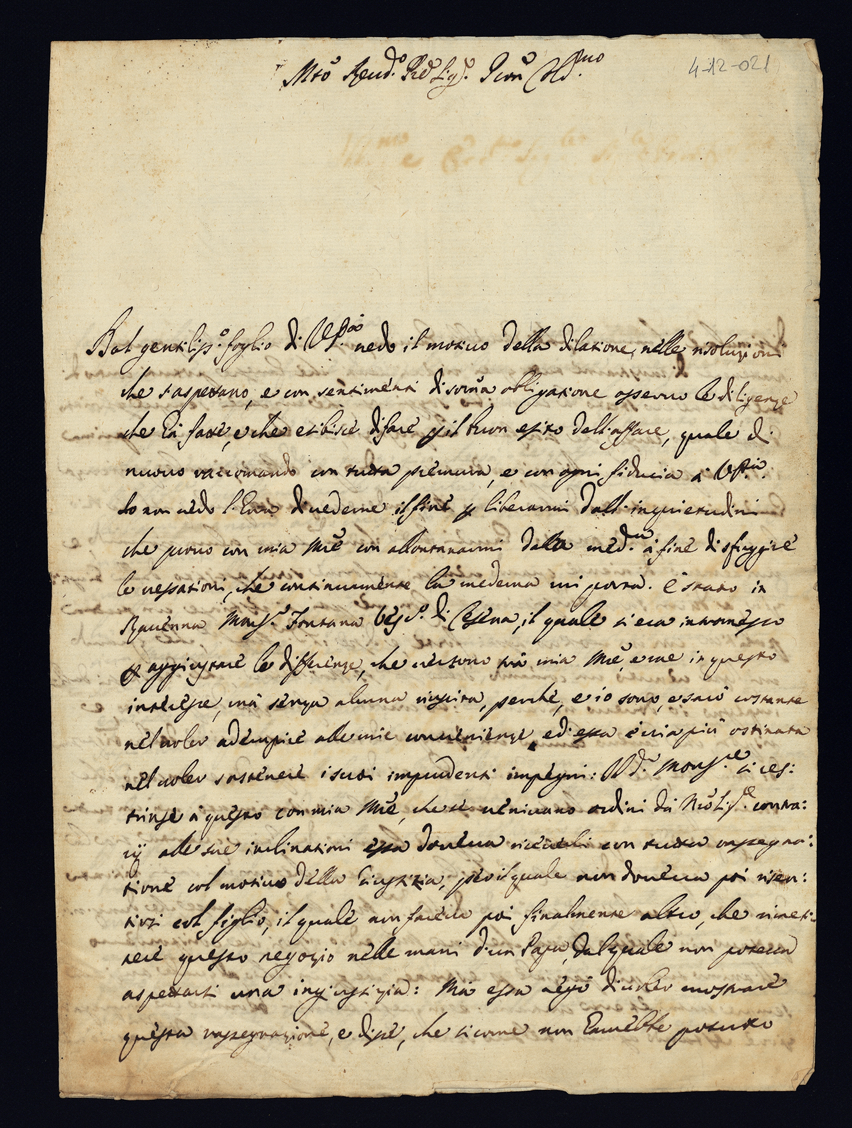 Mto Revdo Pre Sigr Pron Colmo
4-12-021
Dal gentilisso foglio di VSria vedo il motivo della dilatione, nelle risoluzioni
che s'aspettano, e con sentimenti di soma obligatione osservo le diligenze
che hà fatte, e che esibisce di fare p il buon esito dell'affare, quale di
nuovo raccomando con tutta premura, e con ogni fiducia à VSria.
Io non vedo l'hora di vederne il fine p liberarmi dall'inquietudini
che provo con mia Mre con allontanarmi dalla medma à fine di sfuggire
le vessationi, che continuamente la medema mi porta. È stato in
Ravenna Monsr Fontana Vescvo di Cesena, il quale si era intromesso
p aggiustare le differenze, che vertono trà mia Mre, e me in questo
interesse, mà senza alcuna riuscita, perche, e io sono, e sarò costante
nel voler adempire alle mie convenienze, ed essa è via più ostinata
nel voler sostenere i suoi impudenti impegni: Do Monsre si res:
trinse à questo con mia Mre, che se venivano ordini da Nro Sigre contra:
rij alle sue inclinationi essa doveva riceverli con tutta rassegna:
tione col motivo della Giustizia, p il quale non doveva poi risen:
tirsi col figlio, il quale non faceva poi finalmente altro, che rimet:
tere questo negozio nelle mani d'un Papa, dal quale non poteva
aspettarsi una ingiustizia: Mà essa negò di voler mostrare
questa rassegnazione, e disse, che sicome non havrebbe potuto